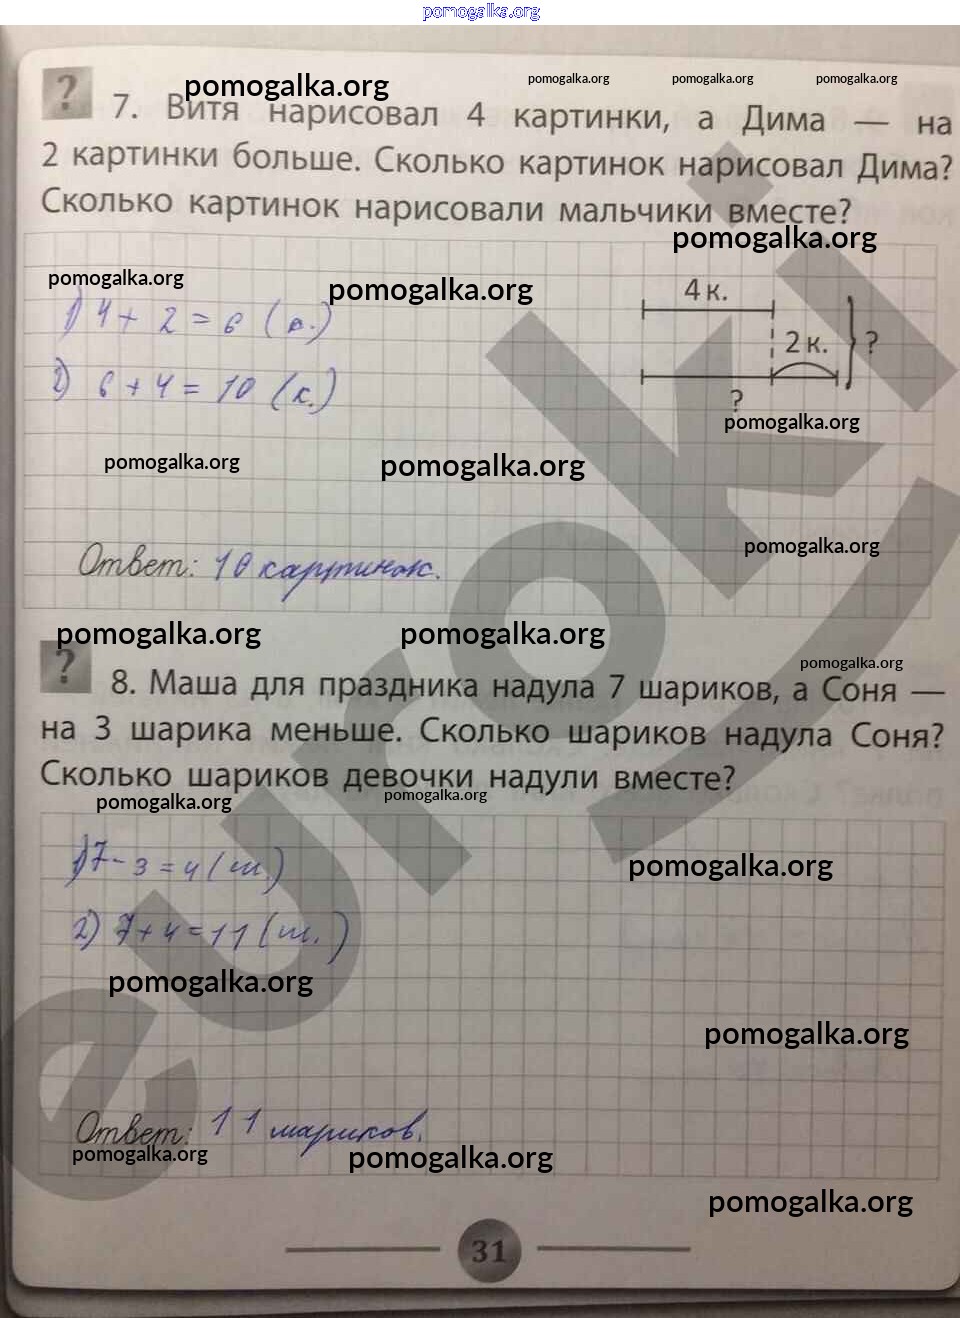 pomogalka.org
? pomogalka.org pomogalka.org pomogalka.org pomogalka.org
7. Витя нарисовал 4 картинки, а Дима — на
2 картинки больше. Сколько картинок нарисовал Дима?
Сколько картинок нарисовали мальчики вместе?
pomogalka.org
pomogalka.org pomogalka.org 4 к.
1) 4 + 2 = 6 (к.)
2 к. ?
2) 6 + 4 = 10 (к.)
?
pomogalka.org
pomogalka.org pomogalka.org
pomogalka.org
Ответ: 10 картинок.
pomogalka.org pomogalka.org
? pomogalka.org
8. Маша для праздника надула 7 шариков, а Соня —
на 3 шарика меньше. Сколько шариков надула Соня?
Сколько шариков девочки надули вместе?
pomogalka.org pomogalka.org
1) 7 - 3 = 4 (ш.)
pomogalka.org
2) 7 + 4 = 11 (ш.)
pomogalka.org
pomogalka.org
Ответ: 11 шариков.
pomogalka.org pomogalka.org
pomogalka.org
31
euroki